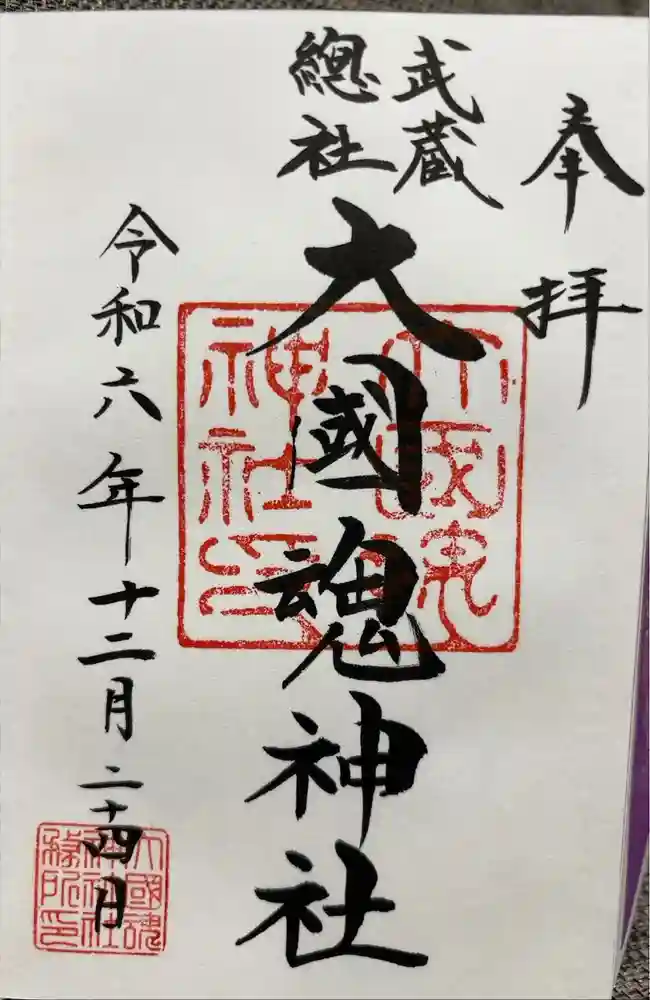 奉拝
武蔵
總社
大國魂神社
令和六年十二月二十四日
大国魂
神社印
大國魂
神社社
務所印